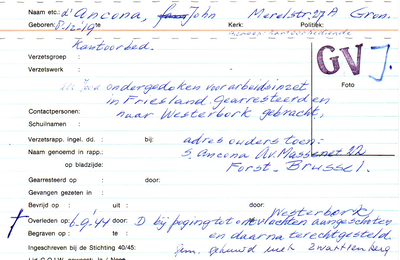 Naam etc: d'Ancona, John Merelstr. 27A Gron.
Geboren: 8-12-19 Kerk: Politiek:
Kantoorbed.
Verzetsgroep :
GV J.
Verzetswerk :
Foto
ondergedoken voor arbeidsinzet
in Friesland. Gearresteerd en
Contactpersonen: naar Westerbork gebracht.
Schuilnaam :
Verzetsrapp. Ingel. dd. : bij: adres ouders toen:
Naam genoemd in rapp.: S. Ancona Av. Massenet 22
op bladzijde: Forst. Brussel.
Gearresteerd op : door:
Gevangen gezeten in :
Bevrijd op : uit : door: Westerbork
Overleden op: 6-9-'44 door: D bij poging tot ontvluchten aangeschoten
Begraven op : te : en daarna terechtgesteld.
Ingeschreven bij de Stichting 40/45: gehuwd met